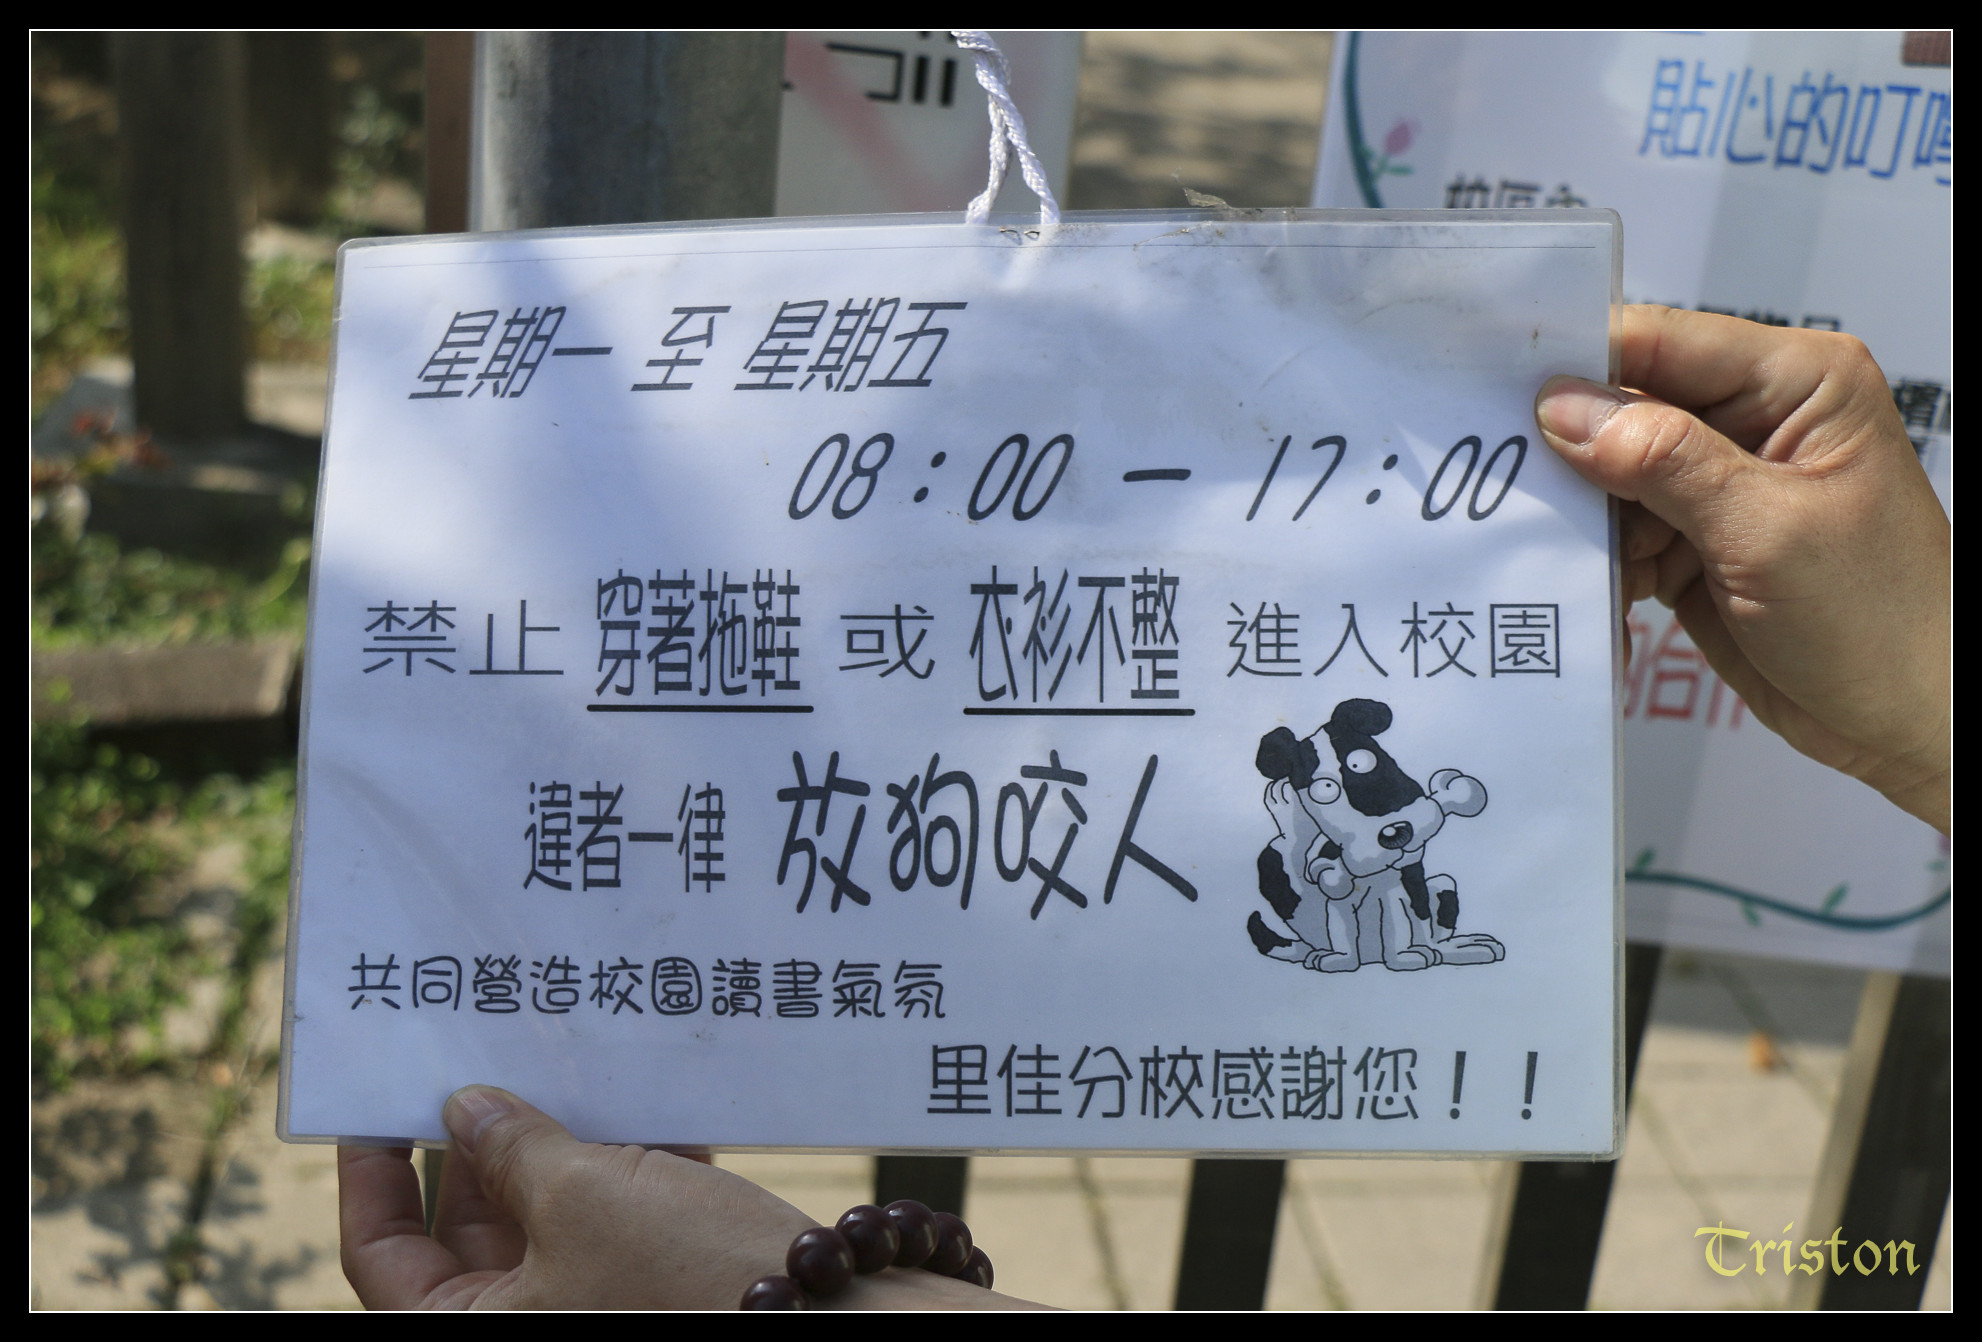 貼心的叮嚀
校區內
星期一 至 星期五
08：00 － 17：00
禁止 穿著拖鞋 或 衣衫不整 進入校園
違者一律 放狗咬人
共同營造校園讀書氣氛
里佳分校感謝您！！
Triston